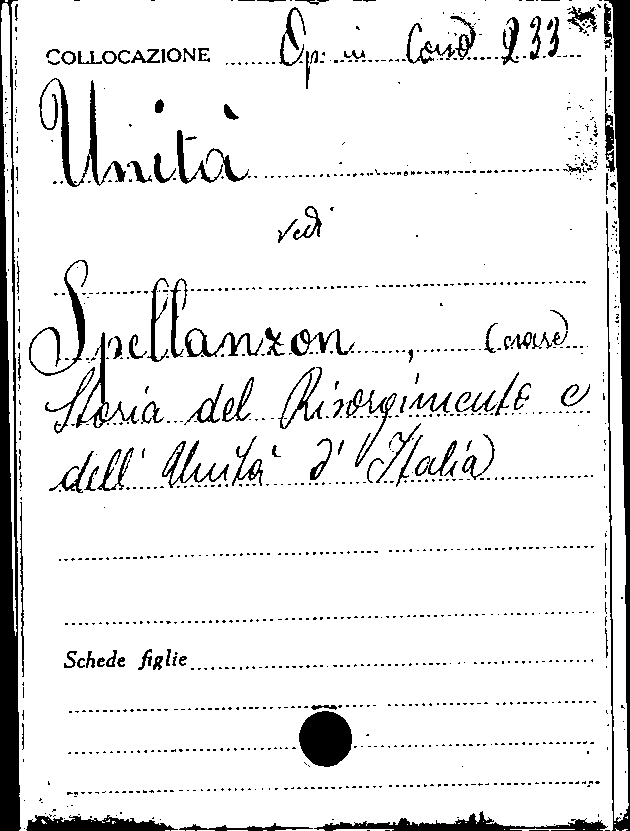 COLLOCAZIONE Op. in Cons 233
Unità
vedi
Spellanzon, (Cesare)
Storia del Risorgimento e
dell' Unità d' Italia
Schede figlie